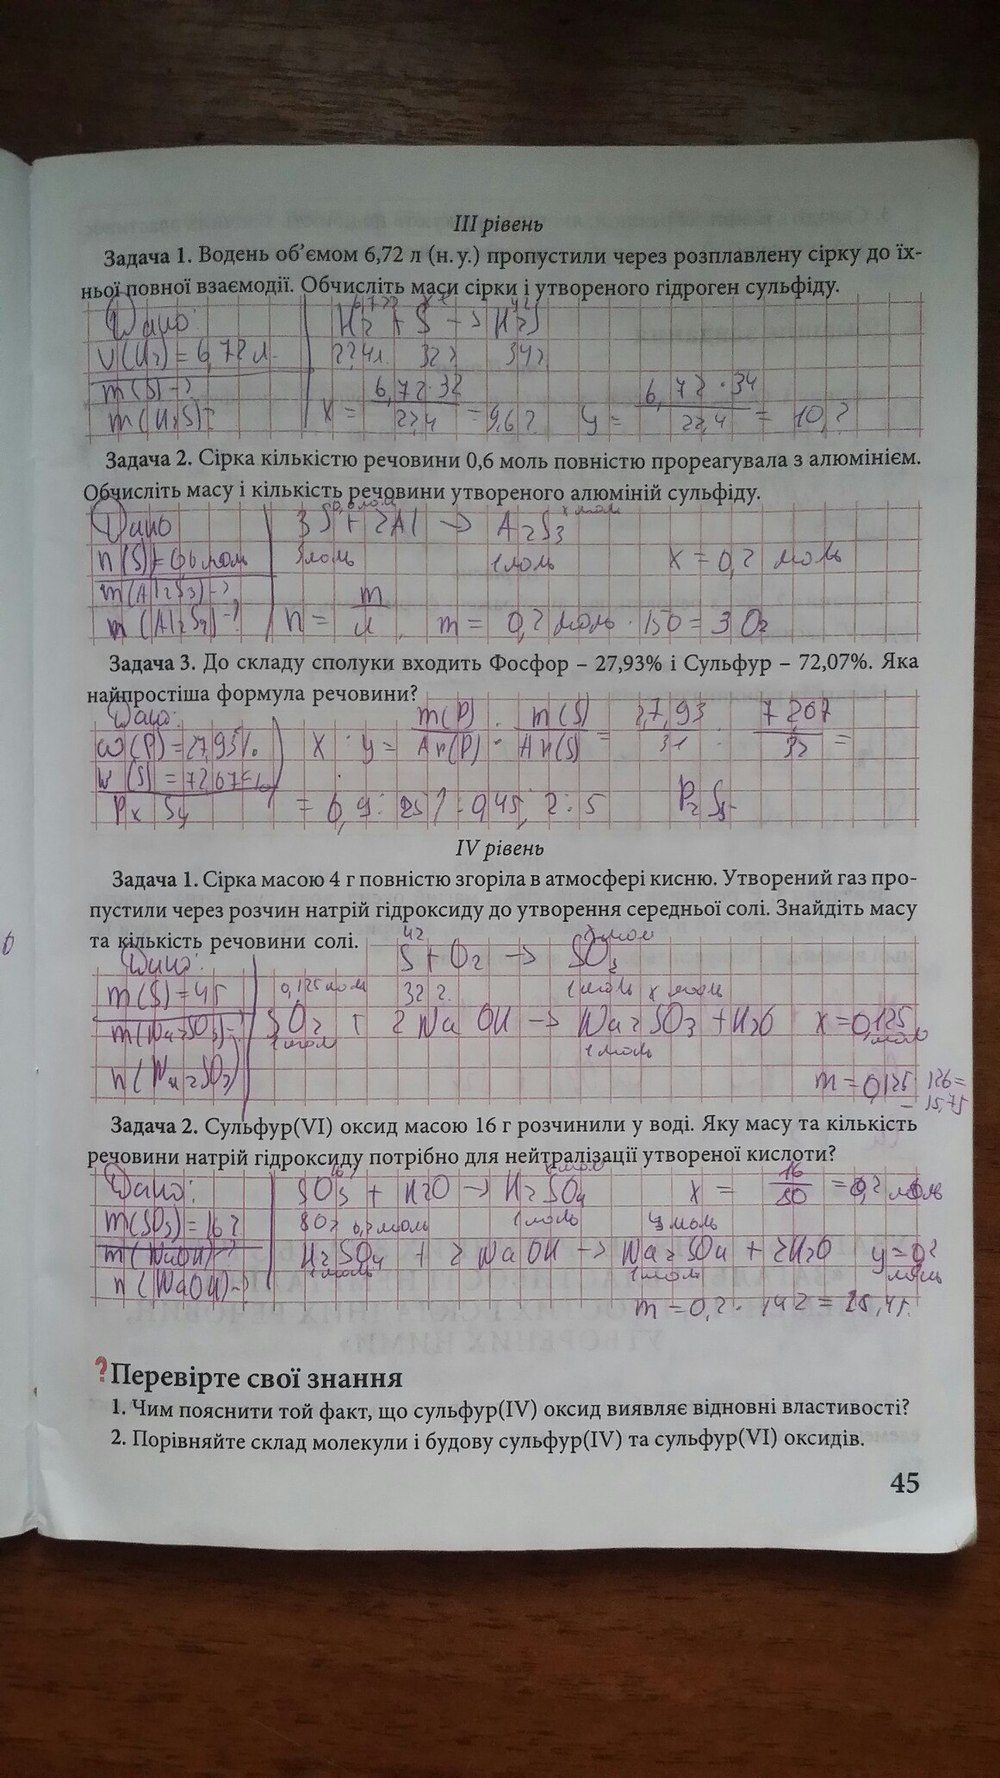 III рівень
Задача 1. Водень об’ємом 6,72 л (н. у.) пропустили через розплавлену сірку до їх-
ньої повної взаємодії. Обчисліть маси сірки і утвореного гідроген сульфіду.
Дано:
H2 + S → H2S
V(H2) = 6,72 л.
22,4л. 32г 34г
m(S) - ?
m(H2S)?
x = 6,72 · 32 / 22,4 = 9,6г. y = 6,72 · 34 / 22,4 = 10,2
Задача 2. Сірка кількістю речовини 0,6 моль повністю прореагувала з алюмінієм.
Обчисліть масу і кількість речовини утвореного алюміній сульфіду.
0,6 моль x моль
Дано 3S + 2Al → Al2S3
n(S) = 0,6 моль 3моль 1моль x = 0,2 моль
m(Al2S3) - ?
n (Al2S3) - ? n = m / M, m = 0,2 моль · 150 = 30г
Задача 3. До складу сполуки входить Фосфор – 27,93% і Сульфур – 72,07%. Яка
найпростіша формула речовини?
Дано:
ω(P) = 27,93% x : y = m(P) / Ar(P) : m(S) / Ar(S) = 27,93 / 31 : 7207 / 32 =
w (S) = 7207%
Px Sy = 0,9 : 2 : 5 P2S5
IV рівень
Задача 1. Сірка масою 4 г повністю згоріла в атмосфері кисню. Утворений газ про-
пустили через розчин натрій гідроксиду до утворення середньої солі. Знайдіть масу
та кількість речовини солі.
4г
Дано: S + O2 → SO2
m(S) = 4г 0,125 моль 32 г. 1моль x моль
m(Na2SO3)-? SO2 + 2 NaOH → Na2SO3 + H2O x = 0,125 моль
1моль 1моль
n(Na2SO3) m = 0,125 · 126 =
= 15,75
Задача 2. Сульфур(VI) оксид масою 16 г розчинили у воді. Яку масу та кількість
речовини натрій гідроксиду потрібно для нейтралізації утвореної кислоти?
16г x моль
Дано: SO3 + H2O → H2SO4 x = 16 / 80 = 0,2 моль
m(SO3) = 16г 80г 0,2 моль 1моль y моль
m(NaOH)-? H2SO4 + 2 NaOH → Na2SO4 + 2H2O y = 0,2 моль
n(NaOH)-? 1моль 1моль
m = 0,2 · 142 = 28,4г.
? Перевірте свої знання
1. Чим пояснити той факт, що сульфур(IV) оксид виявляє відновні властивості?
2. Порівняйте склад молекули і будову сульфур(IV) та сульфур(VI) оксидів.
45